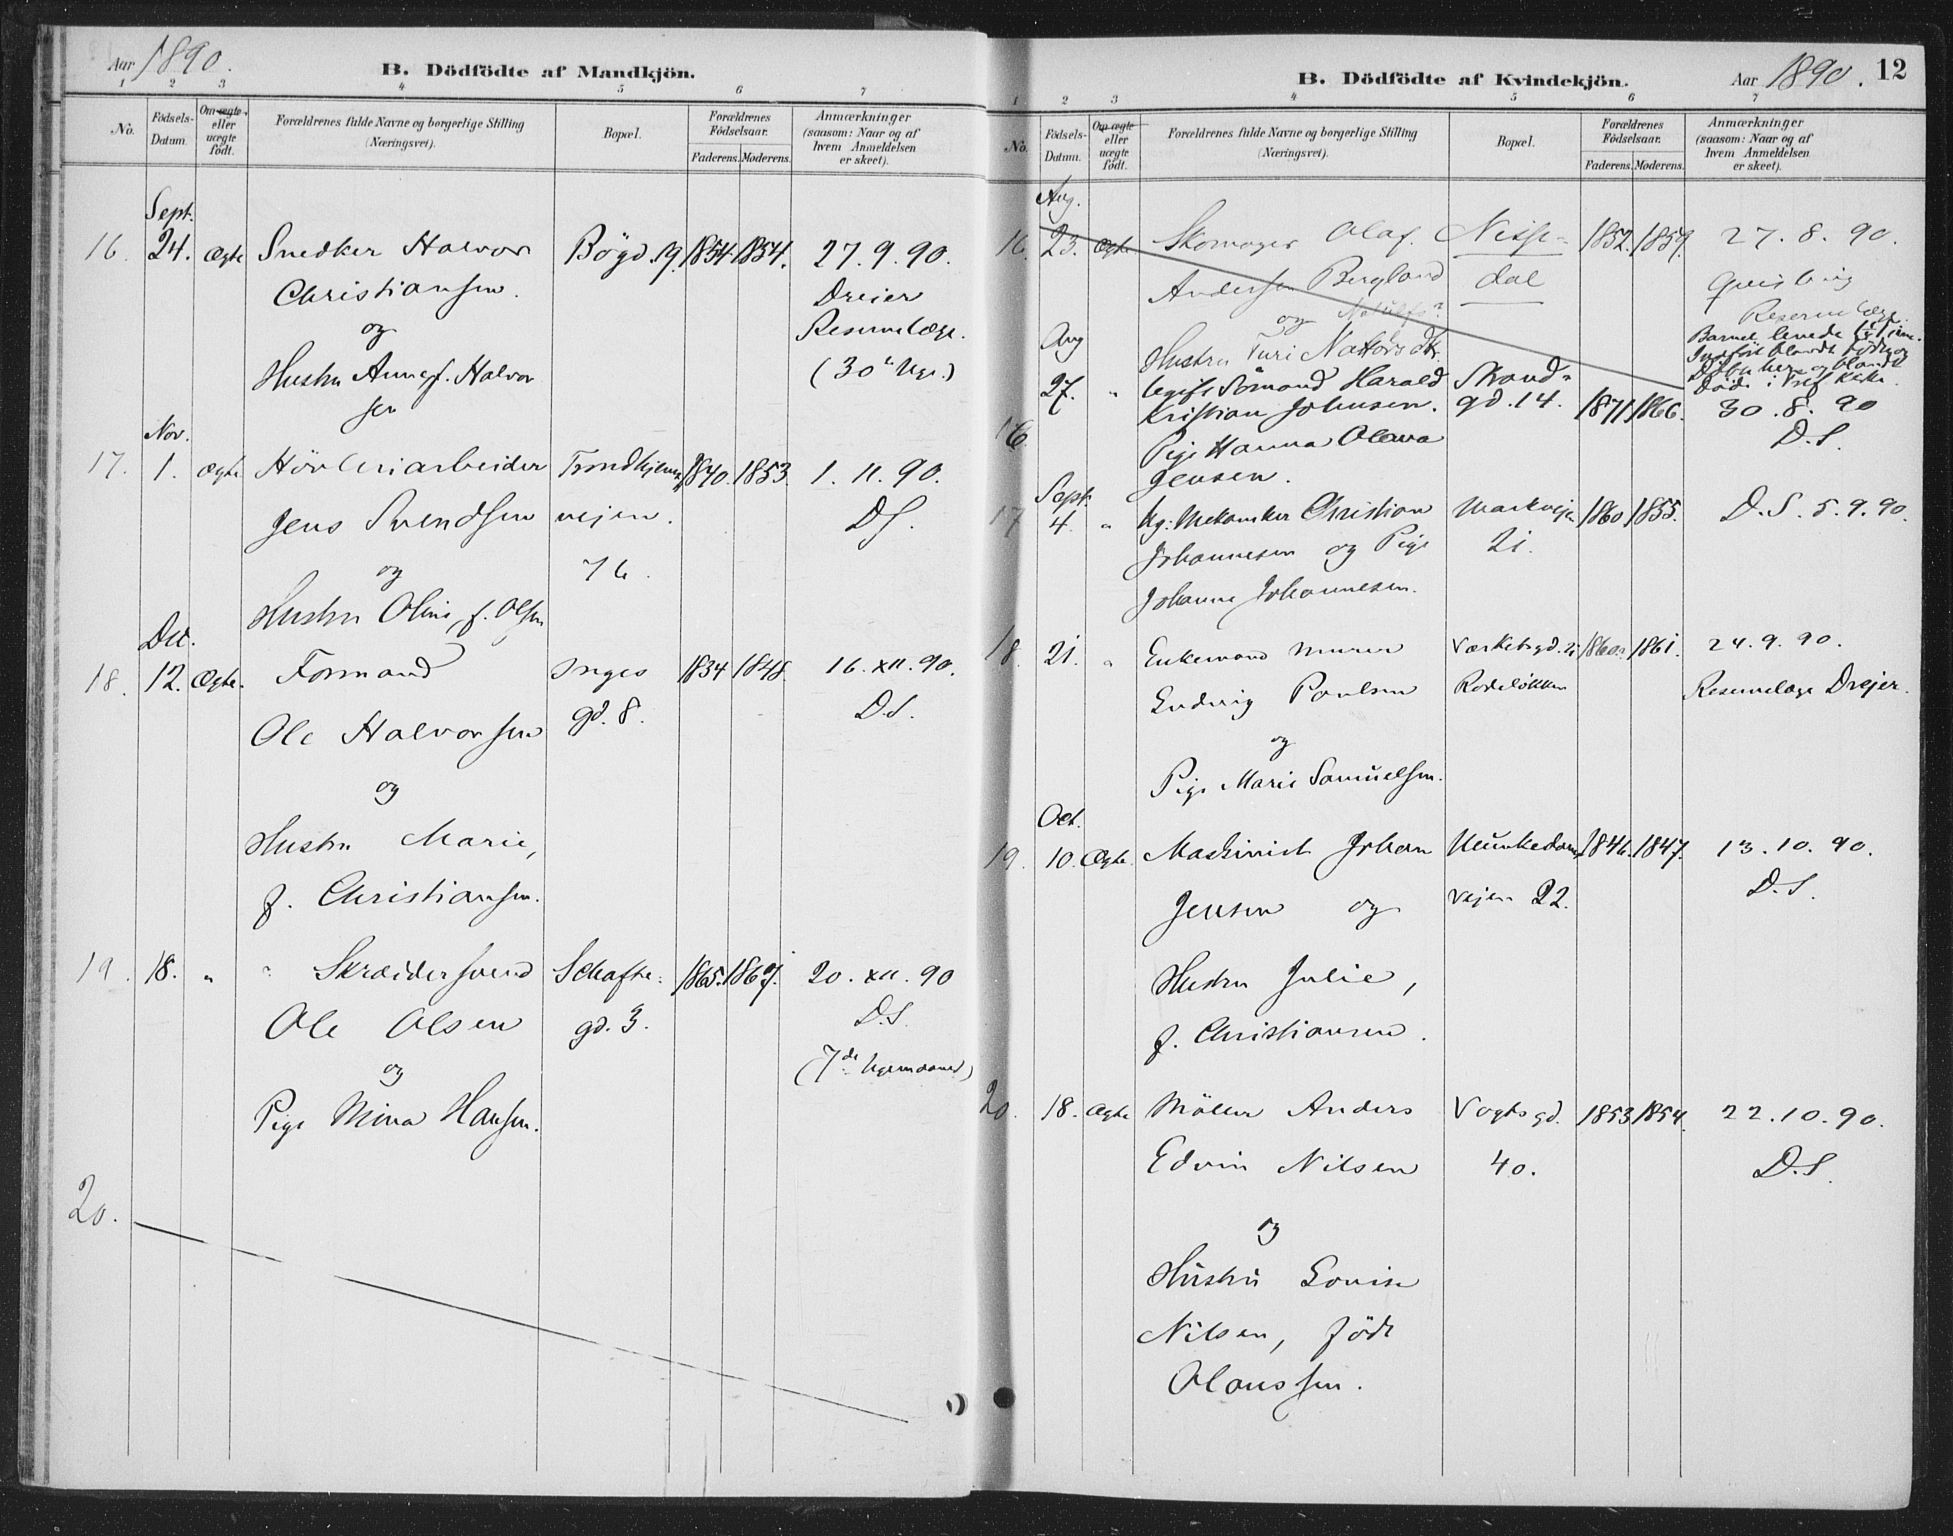 Aar 1890.
B. Dödfödte af Mandkjön.
1 2 3 4 5 6 7
No.
Födsels-
Datum
Om ægte
eller
uægte
födt.
Forældrenes fulde Navne og borgerlige Stilling
(Næringsvei).
Bopæl.
Forældrenes
Födselsaar.
Faderens. Moderens.
Anmærkninger
(saasom: Naar og af
hvem Anmeldelsen
er skeet).
Sept.
16. 24. Ægte Snedker Halvor Bögd. 19. 1854. 1854. 27.9.90.
Christiansen. Dreier
og Reservelæge.
Hustru Anne f. Halvor
sen
Nov.
17. 1. Ægte Hövleriarbeider Trondhjems 1840. 1853. 1.11.90.
Jens Svendsen veien. D.S.
og 76.
Hustru Oline, f. Olsen
Dec.
18. 12. Ægte. Formand Inges 1834 1848. 16.XII.90.
Ole Halvorsen gd. 8. D.S.
og
Hustru Marie,
f. Christiansen.
19. 18. " Skræddersvend Schafte- 1865. 1867. 20.XII.90
Ole Olsen gd. 3. D.S.
og
Pige Mina Hansen.
20.
B. Dödfödte af Kvindekjön.
Aar 1890. 12
1 2 3 4 5 6 7
No.
Födsels-
Datum.
Om ægte
eller
uægte
födt.
Forældrenes fulde Navne og borgerlige Stilling
(Næringsvei).
Bopæl.
Forældrenes
Födselsaar.
Faderens. Moderens.
Anmærkninger
(saasom: Naar og af
hvem Anmeldelsen
er skeet).
Aug.
16. 23. Ægte Skomager Olaf Nisse- 1852. 1859. 27.8.90.
Andersen Bergland dal Quisling
og Reservelæge.
Aug Hustru Turi
27. " Sömand Harald Strand-
Kristian Johnsen. gd. 14. 1871. 1866. 30.8.90
16 Pige Hanna Olava D.S.
Jensen.
Sept.
17 4. " Mekaniker Christian Markvejen 1860 1855. D.S. 5.9.90.
Johannesen og Pige 21.
Johanne Johannesen.
18. 21. " Enkemand Murer Værksgd. 1860. 1861. 24.9.90.
Ludvig Poulsen Rodeløkken Reservelæge Drejer.
og
Pige Marie Samuelsen.
Oct.
19. 10. Ægte. Maskinist Johan Munkedams 1846. 1847. 13.10.90.
Jensen og vejen 22. D.S.
Hustru Julie,
f. Christiansen.
20. 18. Ægte Möller Anders Vogtsgd. 1853 1854. 22.10.90.
Edvin Nilsen 40. D.S.
og
Hustru Lovise
Nilsen, född
Olaussen.